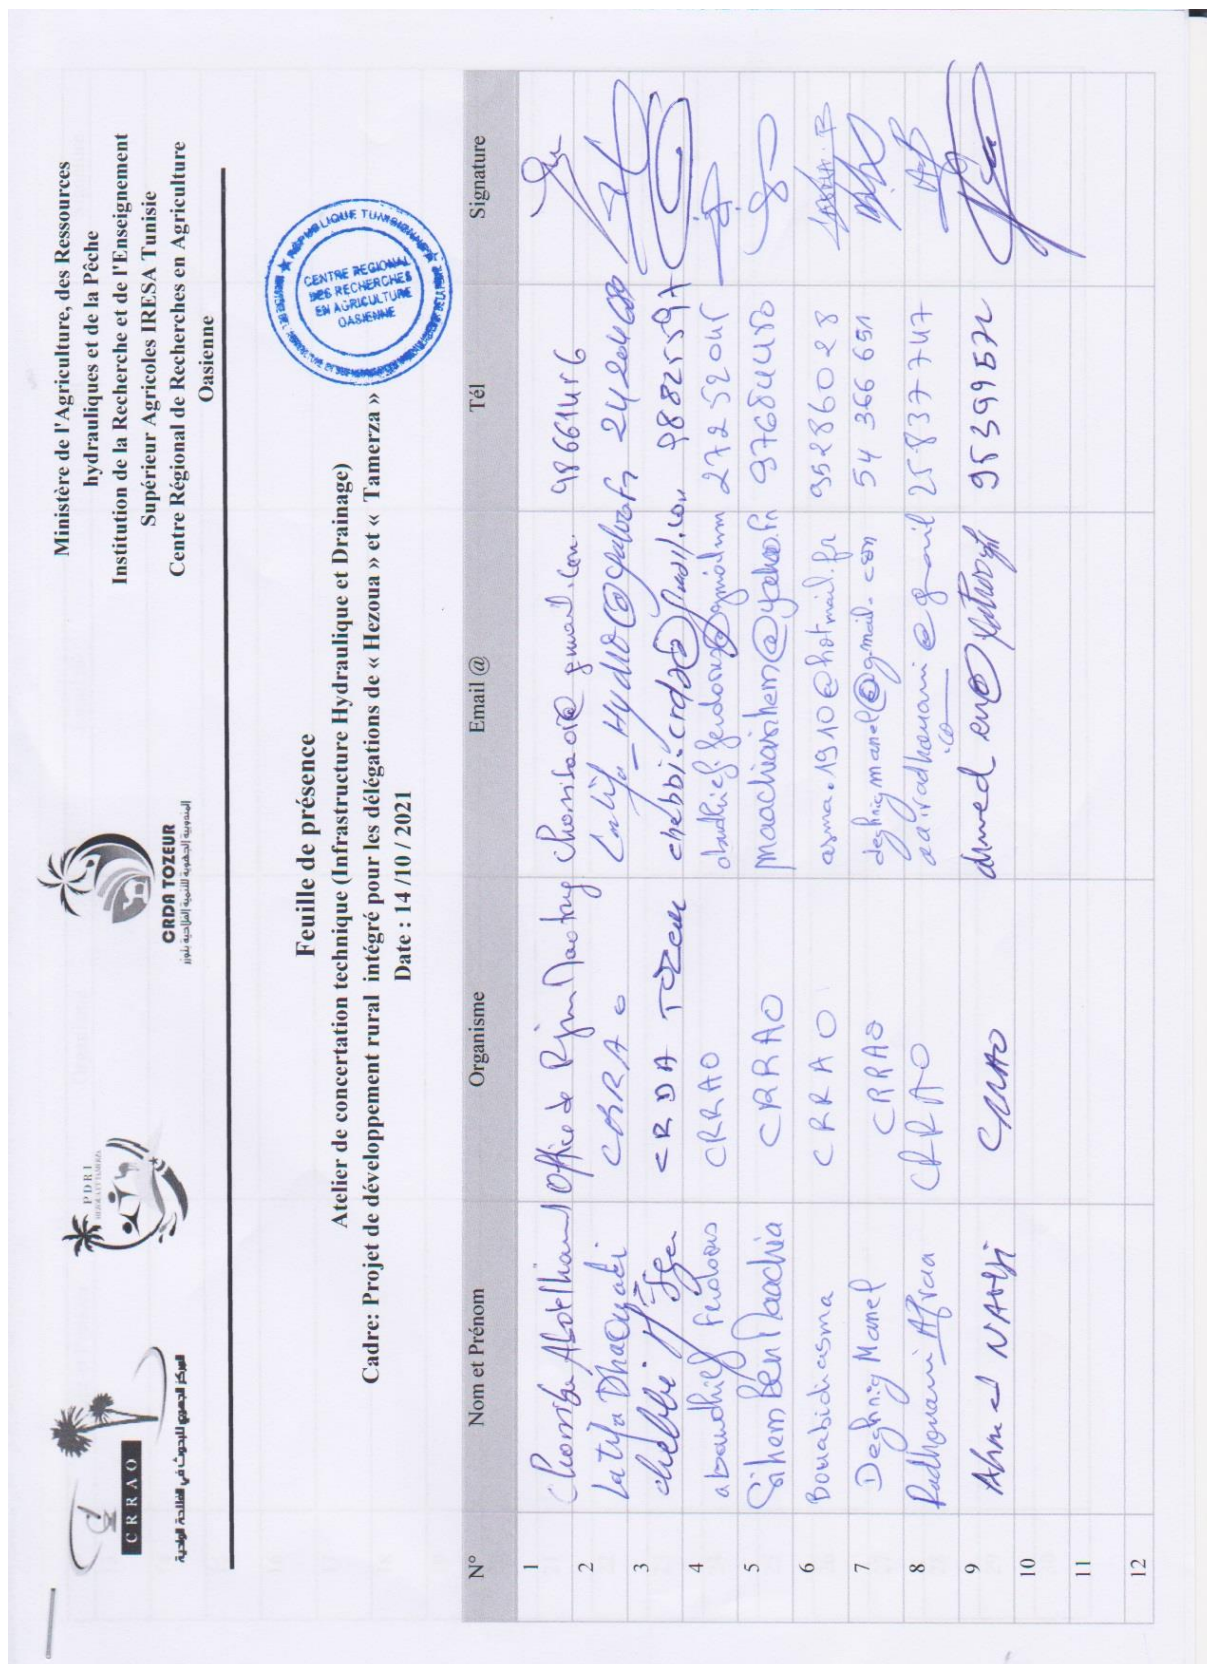 CRRAO
المركز الجهوي للبحوث في الفلاحة الواحية
PDRI
CRDA TOZEUR
المندوبية الجهوية للتنمية الفلاحية بتوزر
Ministère de l'Agriculture, des Ressources
hydrauliques et de la Pêche
Institution de la Recherche et de l'Enseignement
Supérieur Agricoles IRESA Tunisie
Centre Régional de Recherches en Agriculture
Oasienne
REPUBLIQUE TUNISIENNE
CENTRE REGIONAL
DES RECHERCHES
EN AGRICULTURE
OASIENNE
Feuille de présence
Atelier de concertation technique (Infrastructure Hydraulique et Drainage)
Cadre: Projet de développement rural intégré pour les délégations de « Hezoua » et « Tamerza »
Date : 14 /10 / 2021
N° Nom et Prénom Organisme Email @ Tél Signature
1 Office de Rjim Maatoug
2 Latifa Dhaouadi CRRAO
3 chebbi CRDA Tozeur chebbi.crda@gmail.com 98825597
4 Ferdaous CRRAO 27252045
5 Sihem Ben Maachia CRRAO maachiasihem@yahoo.fr 97684450
6 Bouabidi asma CRRAO asma.1910@hotmail.fr 95286028
7 Deghnig Manel CRRAO deghnigmanel@gmail.com 54 366 651
8 Radhouani Afraa CRRAO aaradhouani@gmail.co 25837747
9 Ahmed Namsi CRRAO 95399572
10
11
12